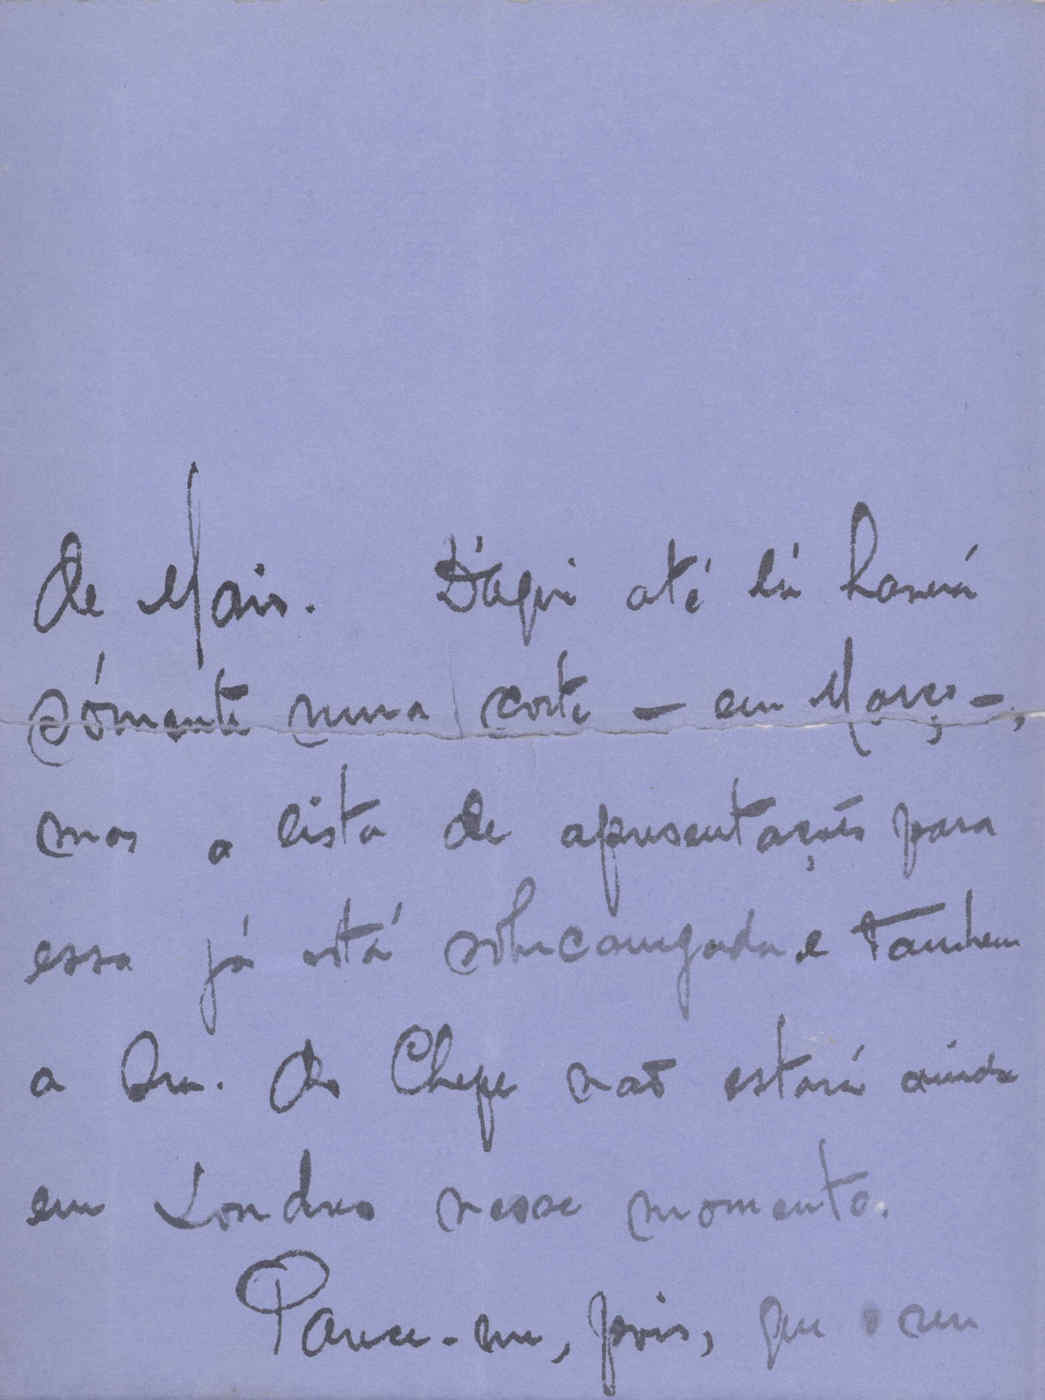 de Maio. D'aqui até lá haverá
sómente uma corte – em Março –;
mas a lista de apresentações para
essa já está sobrecarregada e tambem
a Sra. do Chefe não estará ainda
em Londres nesse momento.
Parece-me, pois, que o seu